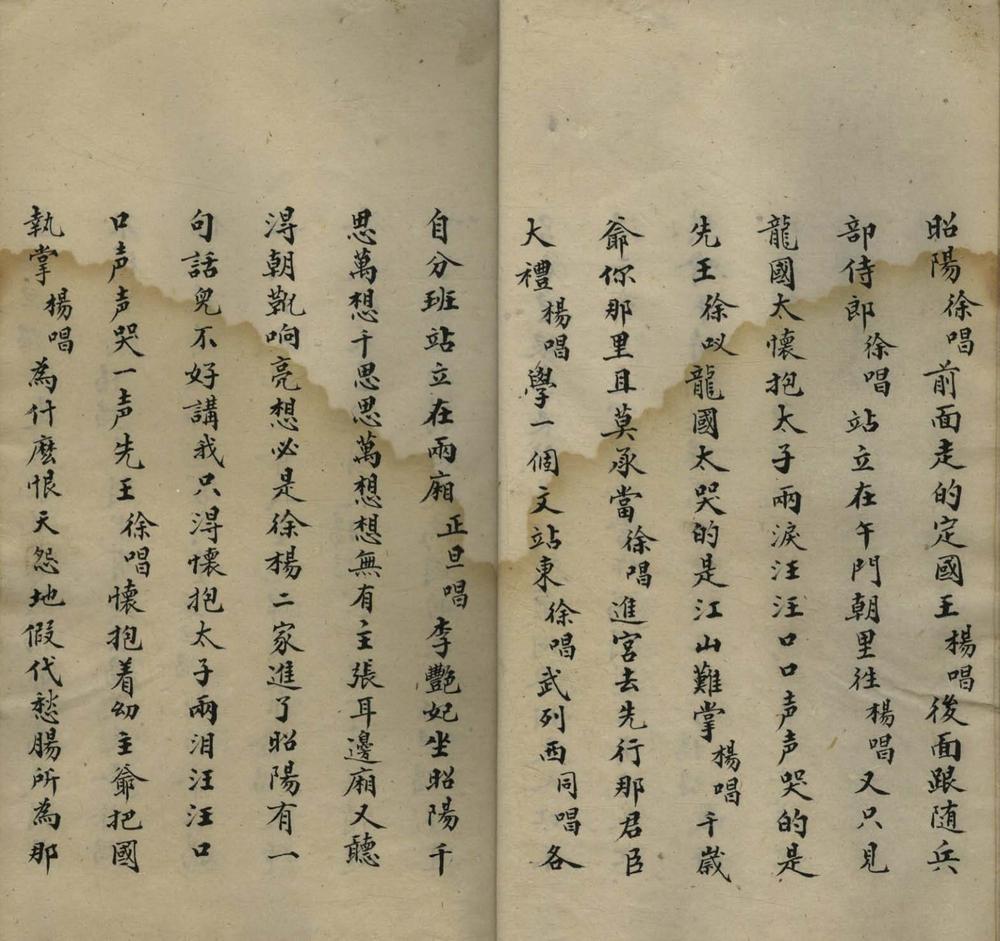 昭陽徐唱前面走的定國王楊唱後面跟随兵
部侍郎徐唱站立在午門朝里徃楊唱又只見
龍國太懷抱太子兩淚汪汪口口声声哭的是
先王徐唱龍國太哭的是江山難掌楊唱千歲
爺你那里且莫承當徐唱進宮去先行那君臣
大禮楊唱學一個文站東徐唱武列西同唱各
自分班站立在兩廂正旦唱李艷妃坐昭陽千
思萬想千思思萬想想無有主張耳邊廂又聽
淂朝靴响亮想必是徐楊二家進了昭陽有一
句話兒不好講我只淂懷抱太子兩泪汪汪口
口声声哭一声先王徐唱懷抱着幼主爺把國
執掌楊唱為什麽恨天怨地假代愁腸所為那